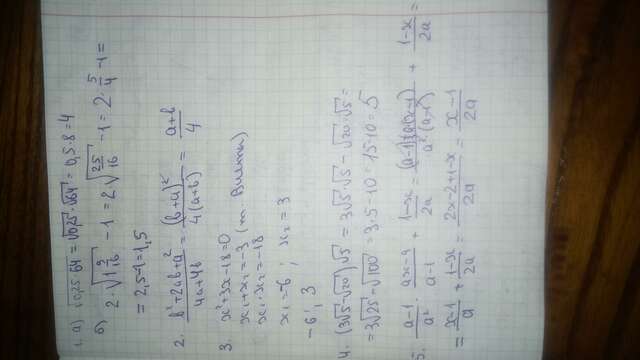 1. а) √0,25·64 = √0,25·√64 = 0,5·8=4
б) 2·√1 9/16 - 1 = 2√25/16 - 1 = 2·5/4 - 1 =
= 2,5-1=1,5
2. (b²+2ab+a²)/(4a+4b) = (b+a)²/(4(a+b)) = (a+b)/4
3. x²+3x-18=0
x₁+x₂=-3 (т. Виета)
x₁·x₂=-18
x₁=-6 ; x₂=3
-6; 3
4. (3√5-√20)√5 = 3√5·√5 - √20·√5 =
=3√25-√100 = 3·5-10 = 15-10=5
5. (a-1)/a² · (ax-a)/(a-1) + (1-x)/2a = (a-1)·a(x-1)/(a²·(a-1)) + (1-x)/2a =
= (x-1)/a + (1-x)/2a = (2x-2+1-x)/2a = (x-1)/2a